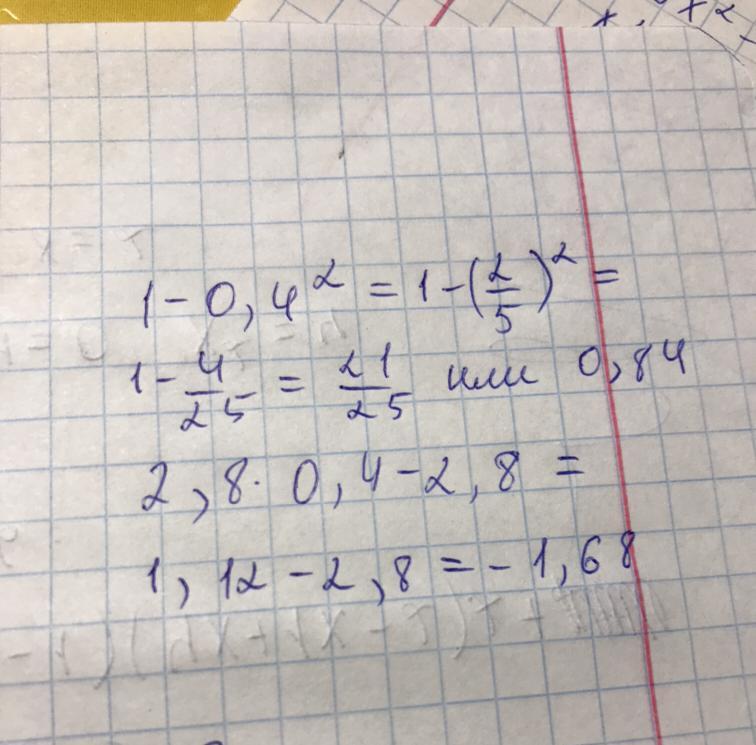 1-0,4² = 1-(2/5)² =
1-4/25 = 21/25 или 0,84
2,8·0,4-2,8 =
1,12-2,8 = -1,68